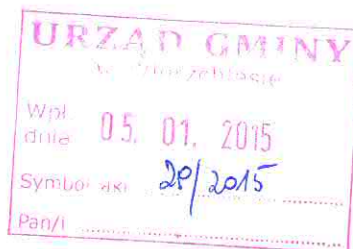 URZĄD GMINY
Wpł.
dnia 05. 01. 2015
Symbol akt 20/2015
Pan/i